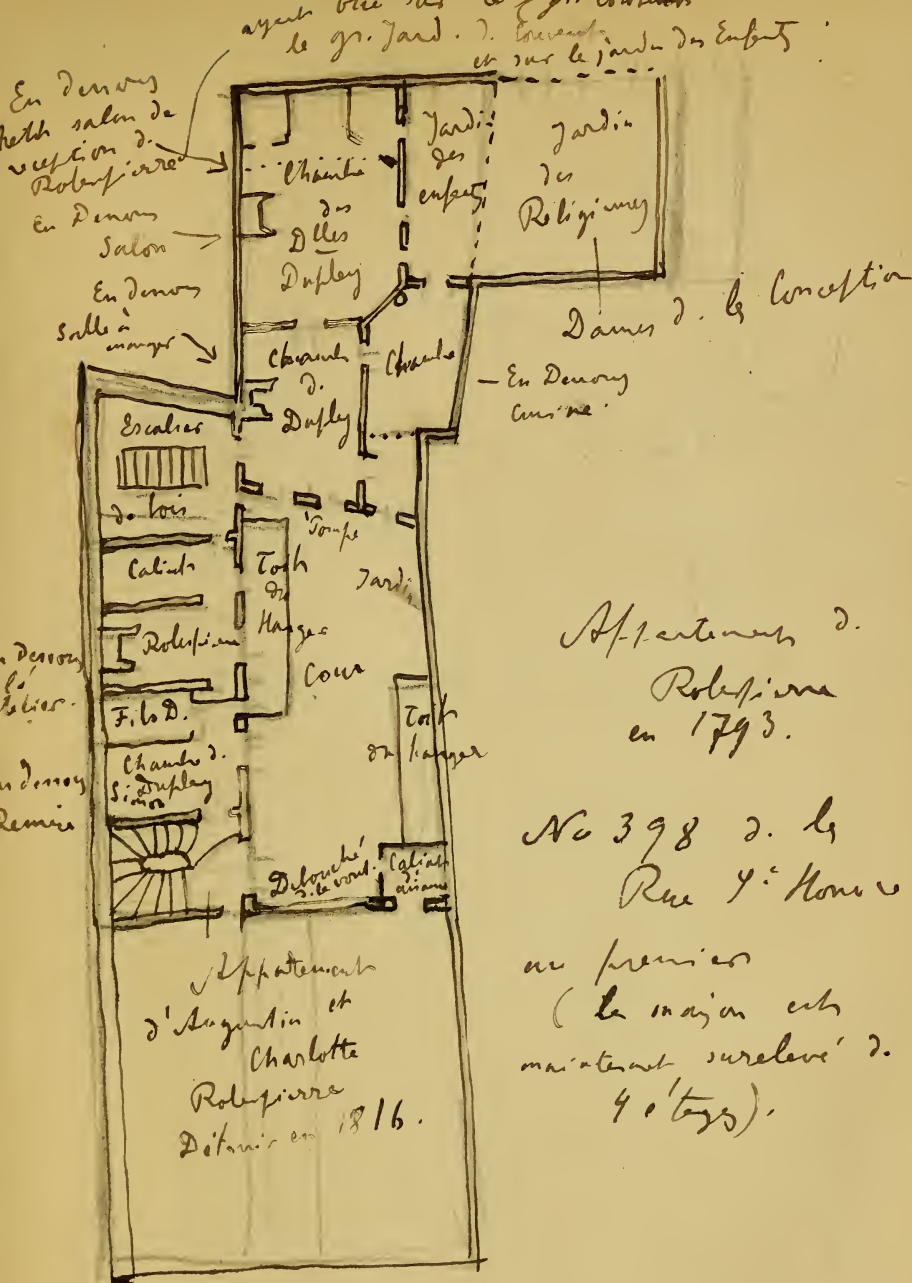 ayant vue sur
le gr. Jard. d. Couvent
et sur le jardin des Enfants
En dessous
petit salon de
réception d.
Robespierre
En Dessous
Salon
En dessous
Salle à
manger
Chambre
des
Dlles
Duplay
Jardin
des
enfants
Jardin
des
Religieuses
Dames d. la Conception
Chambre
d.
Duplay
Chambre
En Dessous
cuisine
Escalier
de bois
Pompe
Cabinet
Toit
du
Hangar
Jardin
Robespierre
Cour
En dessous
l'atelier.
Fils D.
Toit
du hangar
Chambre d.
Simon Duplay
En dessous
Remise
Débouché
d. la voute
Cabinet
d'aisance
Appartement
d'Augustin et
Charlotte
Robespierre
Détruit en 1816.
Appartement d.
Robespierre
en 1793.
No 398 d. la
Rue St Honoré
au premier
(la maison est
maintenant surelevé d.
4 étages).